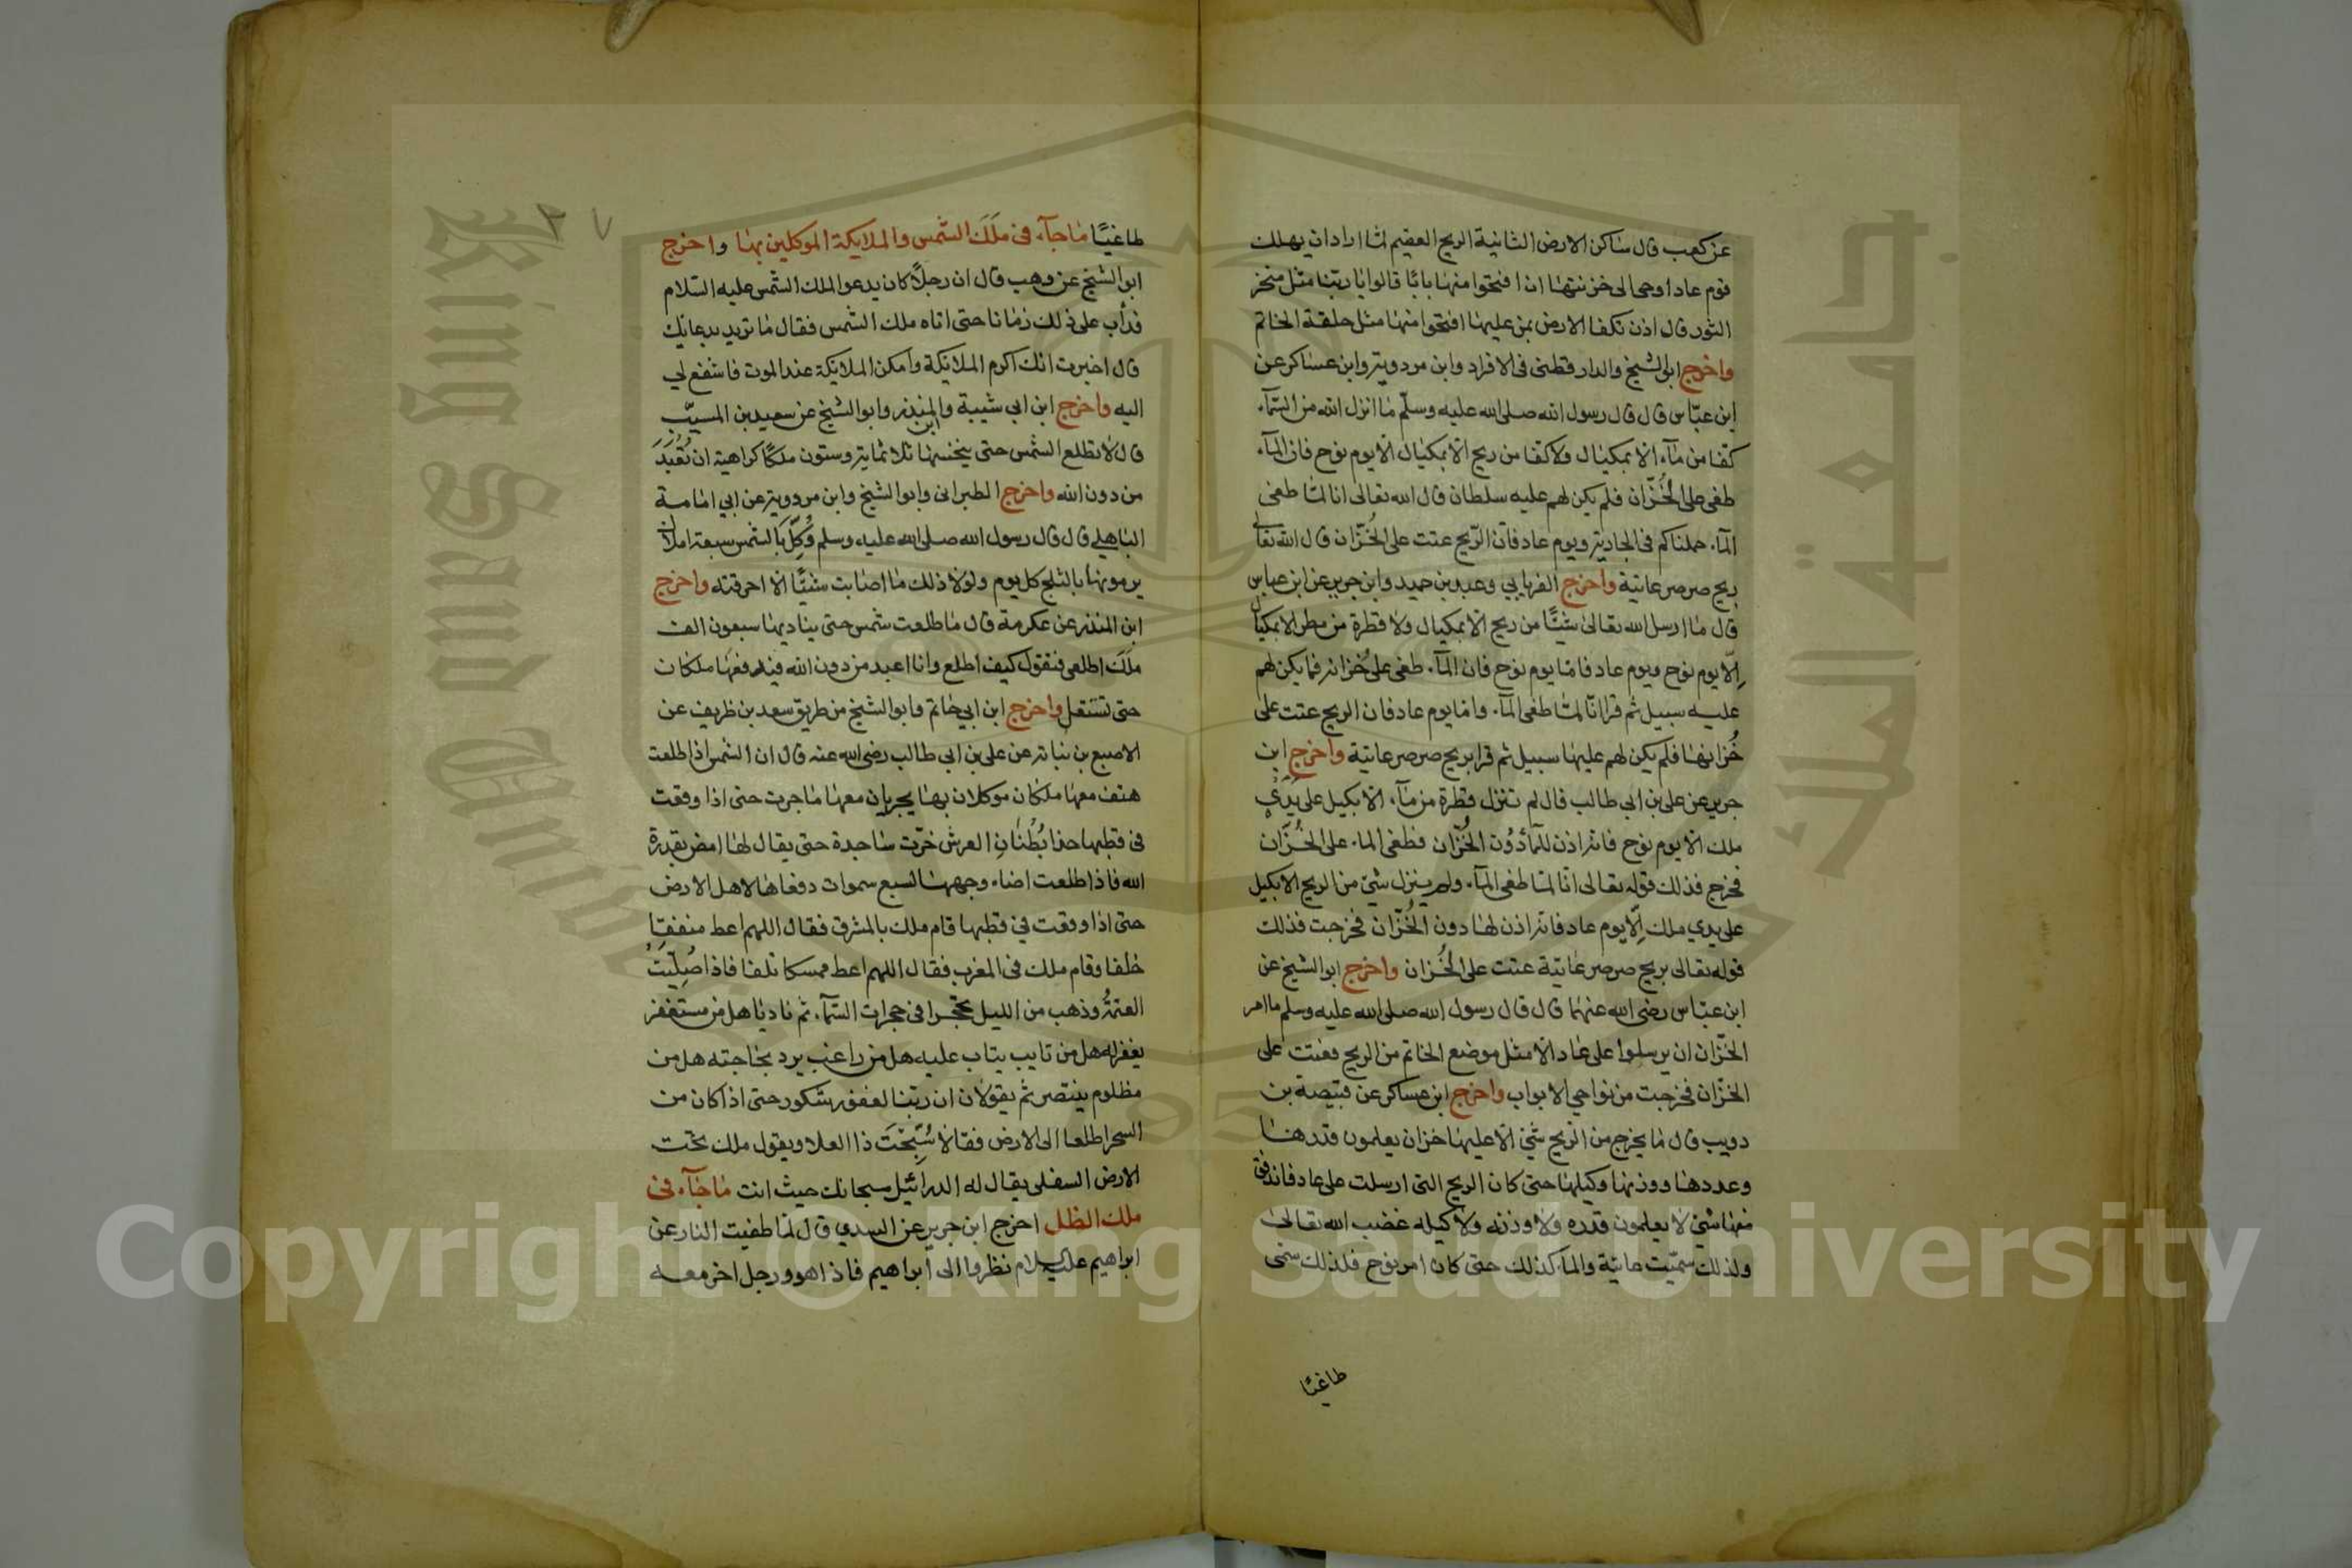 عن كعب قال ساكن الارض الثانية الريح العقيم لما اراد ان يهلك
قوم عاد اوحى الى خزنتها ان افتحوا منها بابا قالوا يا ربنا مثل منخر
الثور قال اذن تكفا الارض بمن عليها افتحوا منها مثل حلقة الخاتم
واخرج ابو الشيخ والدارقطنى فى الافراد وابن مردويه وابن عساكر عن
ابن عباس قال قال رسول الله صلى الله عليه وسلم ما انزل الله من السمآء
كفا من مآء الا بمكيال ولا كفا من ريح الا بمكيال الا يوم نوح فان المآء
طغى على الخُزّان فلم يكن لهم عليه سلطان قال الله تعالى انا لما طغى
المآء حملناكم فى الجارية ويوم عاد فان الريح عتت على الخُزّان قال الله تعالى
ريح صرصر عاتية واخرج الفريابي وعبد بن حميد وابن جرير عن ابن عباس
قال ما ارسل الله تعالى شيئًا من ريح الا بمكيال ولا قطرة من مطر الا بمكيال
اِلّا يوم نوح ويوم عاد فاما يوم نوح فان المآء طغى على خُزانه فما يكن لهم
عليه سبيل ثم قرا انّا لما طغى المآء واما يوم عاد فان الريح عتت على
خُزانها فلم يكن لهم عليها سبيل ثم قرا بريح صرصر عاتية واخرج ابن
جرير عن على بن ابى طالب قال لم تنزل قطرة من مآء الا بكيل على يَدَيْ
ملك الا يوم نوح فانه اذن للمآء دُون الخُزّان فطغى الماء على الخُزَّان
فخرج فذلك قوله تعالى انّا لما طغى المآء ولم ينزل شئ من الريح الا بكيل
على يدي ملك اِلّا يوم عاد فانه اذن لها دون الخُزّان فخرجت فذلك
قوله تعالى بريح صرصر عاتية عتت على الخُزان واخرج ابو الشيخ عن
ابن عباس رضى الله عنهما قال قال رسول الله صلى الله عليه وسلم ما امر
الخزّان ان يرسلوا على عاد الا مثل موضع الخاتم من الريح فعتت على
الخزّان فخرجت من نواحي الابواب واخرج ابن عساكر عن قبيصة بن
دويب قال ما يخرج من الريح شئ الا عليها خزان يعلمون قدرها
وعددها ووزنها وكيلها حتى كان الريح التى ارسلت على عاد فاندفق
منها شئ لا يعلمون قدره ولا وزنه ولا كيله غضب الله تعالى
ولذلك سمّيت عاتية والمآء كذلك حتى كان امر نوح فلذلك سمى
طاغيًا
٣٧
طاغيًا ماجآء فى مَلَكَ الشمس والملايكة الموكلين بها واخرج
ابو الشيخ عن وهب قال ان رجلًا كان يدعو الملك الشمس عليه السلام
فدأب على ذلك زمانا حتى اتاه ملك الشمس فقال ما تريد بدعائك
قال اخبرت انك اكرم الملايكة وامكن الملايكة عند الموت فاشفع لي
اليه واخرج ابن ابي شيبة وابن المنذر وابو الشيخ عن سعيد بن المسيّب
قال لا تطلع الشمس حتى ينخسها ثلاثماية وستون ملكًا كراهية ان تُعْبَدَ
من دون الله واخرج الطبرانى وابو الشيخ وابن مردويه عن ابي امامة
الباهلي قال قال رسول الله صلى الله عليه وسلم وُكِّلَ بالشمس سبعة املاك
يرمونها بالثلج كل يوم ولولا ذلك ما اصابت شيئًا الا احرقته واخرج
ابن المنذر عن عكرمة قال ما طلعت شمس حتى يناديها سبعون الف
ملَك اطلعى فتقول كيف اطلع وانا اعبد من دون الله فيدفعها ملكان
حتى تستقل واخرج ابن ابي حاتم وابو الشيخ من طريق سعد بن ظريف عن
الاصبع بن نباته عن على بن ابي طالب رضى الله عنه قال ان الشمس اذا طلعت
هتف معها ملكان موكلان بها يجريان معها ما جرت حتى اذا وقعت
فى قطبها حذا بُطْنَانِ العرش خرّت ساجدة حتى يقال لها امض بقدرة
الله فاذا طلعت اضاء وجهها لسبع سموات وقفاها لاهل الارض
حتى اذا وقعت في قطبها قام ملك بالمشرق فقال اللهم اعط منفقا
خلفا وقام ملك فى المغرب فقال اللهم اعط ممسكا تلفا فاذا صُلِّيَتْ
العتمةُ وذهب من الليل تحجرا فى حجرات السّمآء ثم ناديا هل من مستغفر
يغفر له هل من تايب يتاب عليه هل من راغب يرد بحاجته هل من
مظلوم ينتصر ثم يقولان ان ربنا لغفور شكور حتى اذا كان من
السحر اطلعا الى الارض فقالا سُبِّحْتَ ذا العلا ويقول ملك تحت
الارض السفلى يقال له الدرائيل سبحانك حيث انت ماجآء فى
ملك الظل اخرج ابن جرير عن السدي قال لما طفيت النار عن
ابراهيم عليه السلام نظروا الى ابراهيم فاذا هو ورجل اخر معه
King Saud Univer
جامعة الملك
Copyright © King Saud University